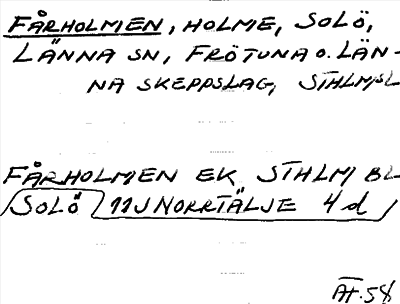 FÅRHOLMEN, HOLME, SOLÖ,
LÄNNA SN, FRÖTUNA O. LÄN-
NA SKEPPSLAG, STHLM/SL
FÅRHOLMEN EK STHLM BL
SOLÖ 11J NORRTÄLJE 4d
AF.58